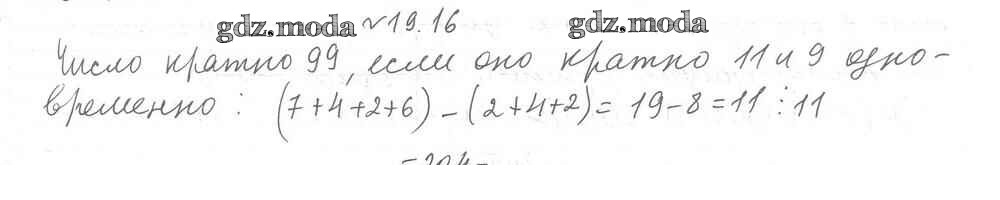 gdz.moda №19.16 gdz.moda
Число кратно 99, если оно кратно 11 и 9 одно-
временно: (7+4+2+6)-(2+4+2)=19-8=11⋮11